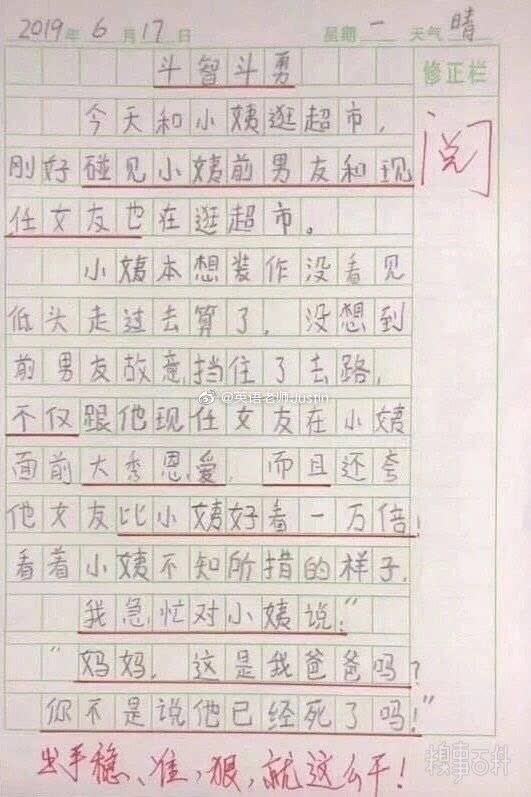 2019年6月17日 星期一 天气晴
斗智斗勇
修正栏
今天和小姨逛超市，
阅
刚好碰见小姨前男友和现
任女友也在逛超市。
小姨本想装作没看见
低头走过去算了，没想到
前男友故意挡住了去路，
@英语老师Justin
不仅跟他现任女友在小姨
面前大秀恩爱，而且还夸
他女友比小姨好看一万倍！
看着小姨不知所措的样子，
我急忙对小姨说："
"妈妈，这是我爸爸吗？
你不是说他已经死了吗！"
出手稳、准，狠，就这么干！
糗事百科